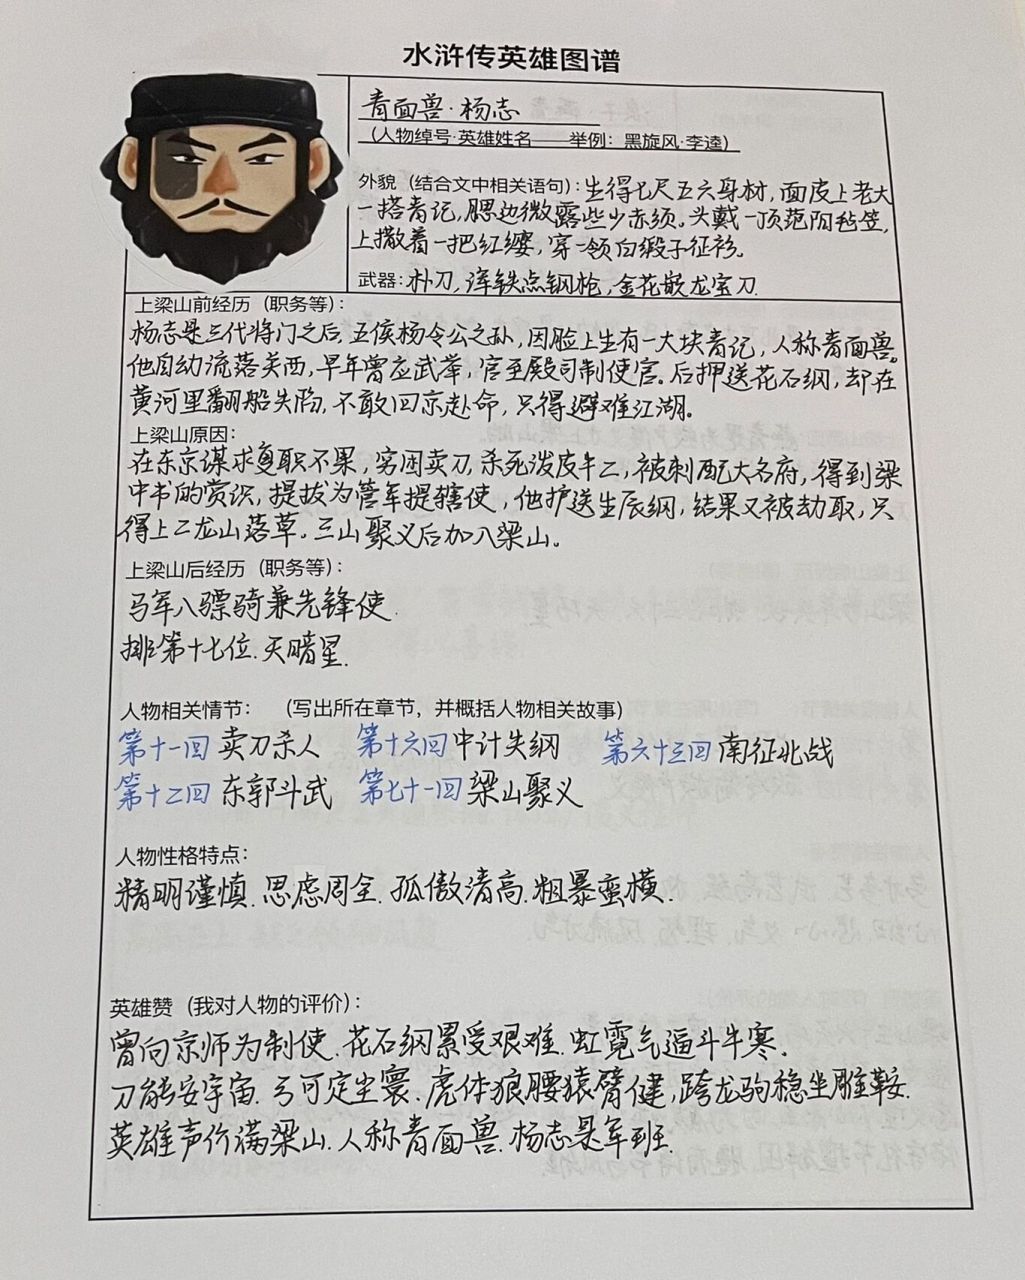 水浒传英雄图谱
青面兽·杨志
(人物绰号·英雄姓名——举例：黑旋风·李逵)
外貌（结合文中相关语句）：生得七尺五六身材，面皮上老大
一搭青记，腮边微露些少赤须。头戴一顶范阳毡笠，
上撒着一把红缨，穿一领白缎子征衫。
武器：朴刀，浑铁点钢枪，金花嵌龙宝刀
上梁山前经历（职务等）：
杨志是三代将门之后，五侯杨令公之孙，因脸上生有一大块青记，人称青面兽。
他自幼流落关西，早年曾应武举，官至殿司制使官。后押送花石纲，却在
黄河里翻船失陷，不敢回京赴命，只得避难江湖。
上梁山原因：
在东京谋求复职不果，穷困卖刀，杀死泼皮牛二，被刺配大名府，得到梁
中书的赏识，提拔为管军提辖使，他护送生辰纲，结果又被劫取，只
得上二龙山落草。三山聚义后加入梁山。
上梁山后经历（职务等）：
马军八骠骑兼先锋使.
排第十七位.天暗星.
人物相关情节：（写出所在章节，并概括人物相关故事）
第十一回 卖刀杀人 第十六回 中计失纲 第六十三回 南征北战
第十二回 东郭斗武 第七十一回 梁山聚义
人物性格特点：
精明谨慎.思虑周全.孤傲清高.粗暴蛮横.
英雄赞（我对人物的评价）：
曾向京师为制使.花石纲累受艰难.虹霓气逼斗牛寒.
刀能安宇宙.弓可定尘寰.虎体狼腰猿臂健,跨龙驹稳坐雕鞍.
英雄声价满梁山.人称青面兽.杨志是军班.